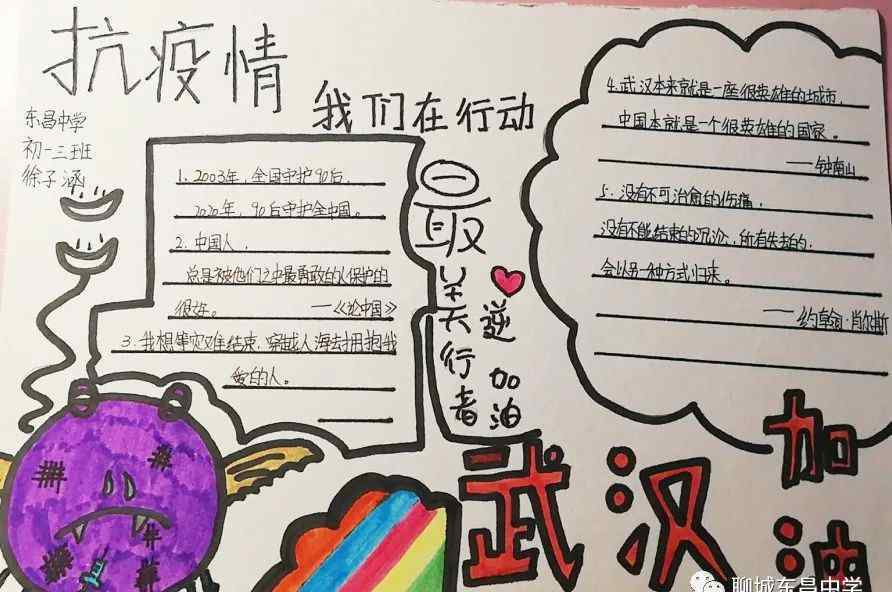 抗疫情
我们在行动
东昌中学
初一三班
徐子涵
1. 2003年，全国守护90后，
2020年，90后守护全中国。
2. 中国人，
总是被他们之中最勇敢的人保护的
很好。 ——《论中国》
3. 我想等灾难结束，穿越人海去拥抱我
爱的人。
最美逆行者
加油
4. 武汉本来就是一座很英雄的城市，
中国本就是一个很英雄的国家。
——钟南山
5. 没有不可治愈的伤痛，
没有不能结束的沉沦，所有失去的，
会以另一种方式归来。
——约翰·肖尔斯
武汉
加油
聊城东昌中学